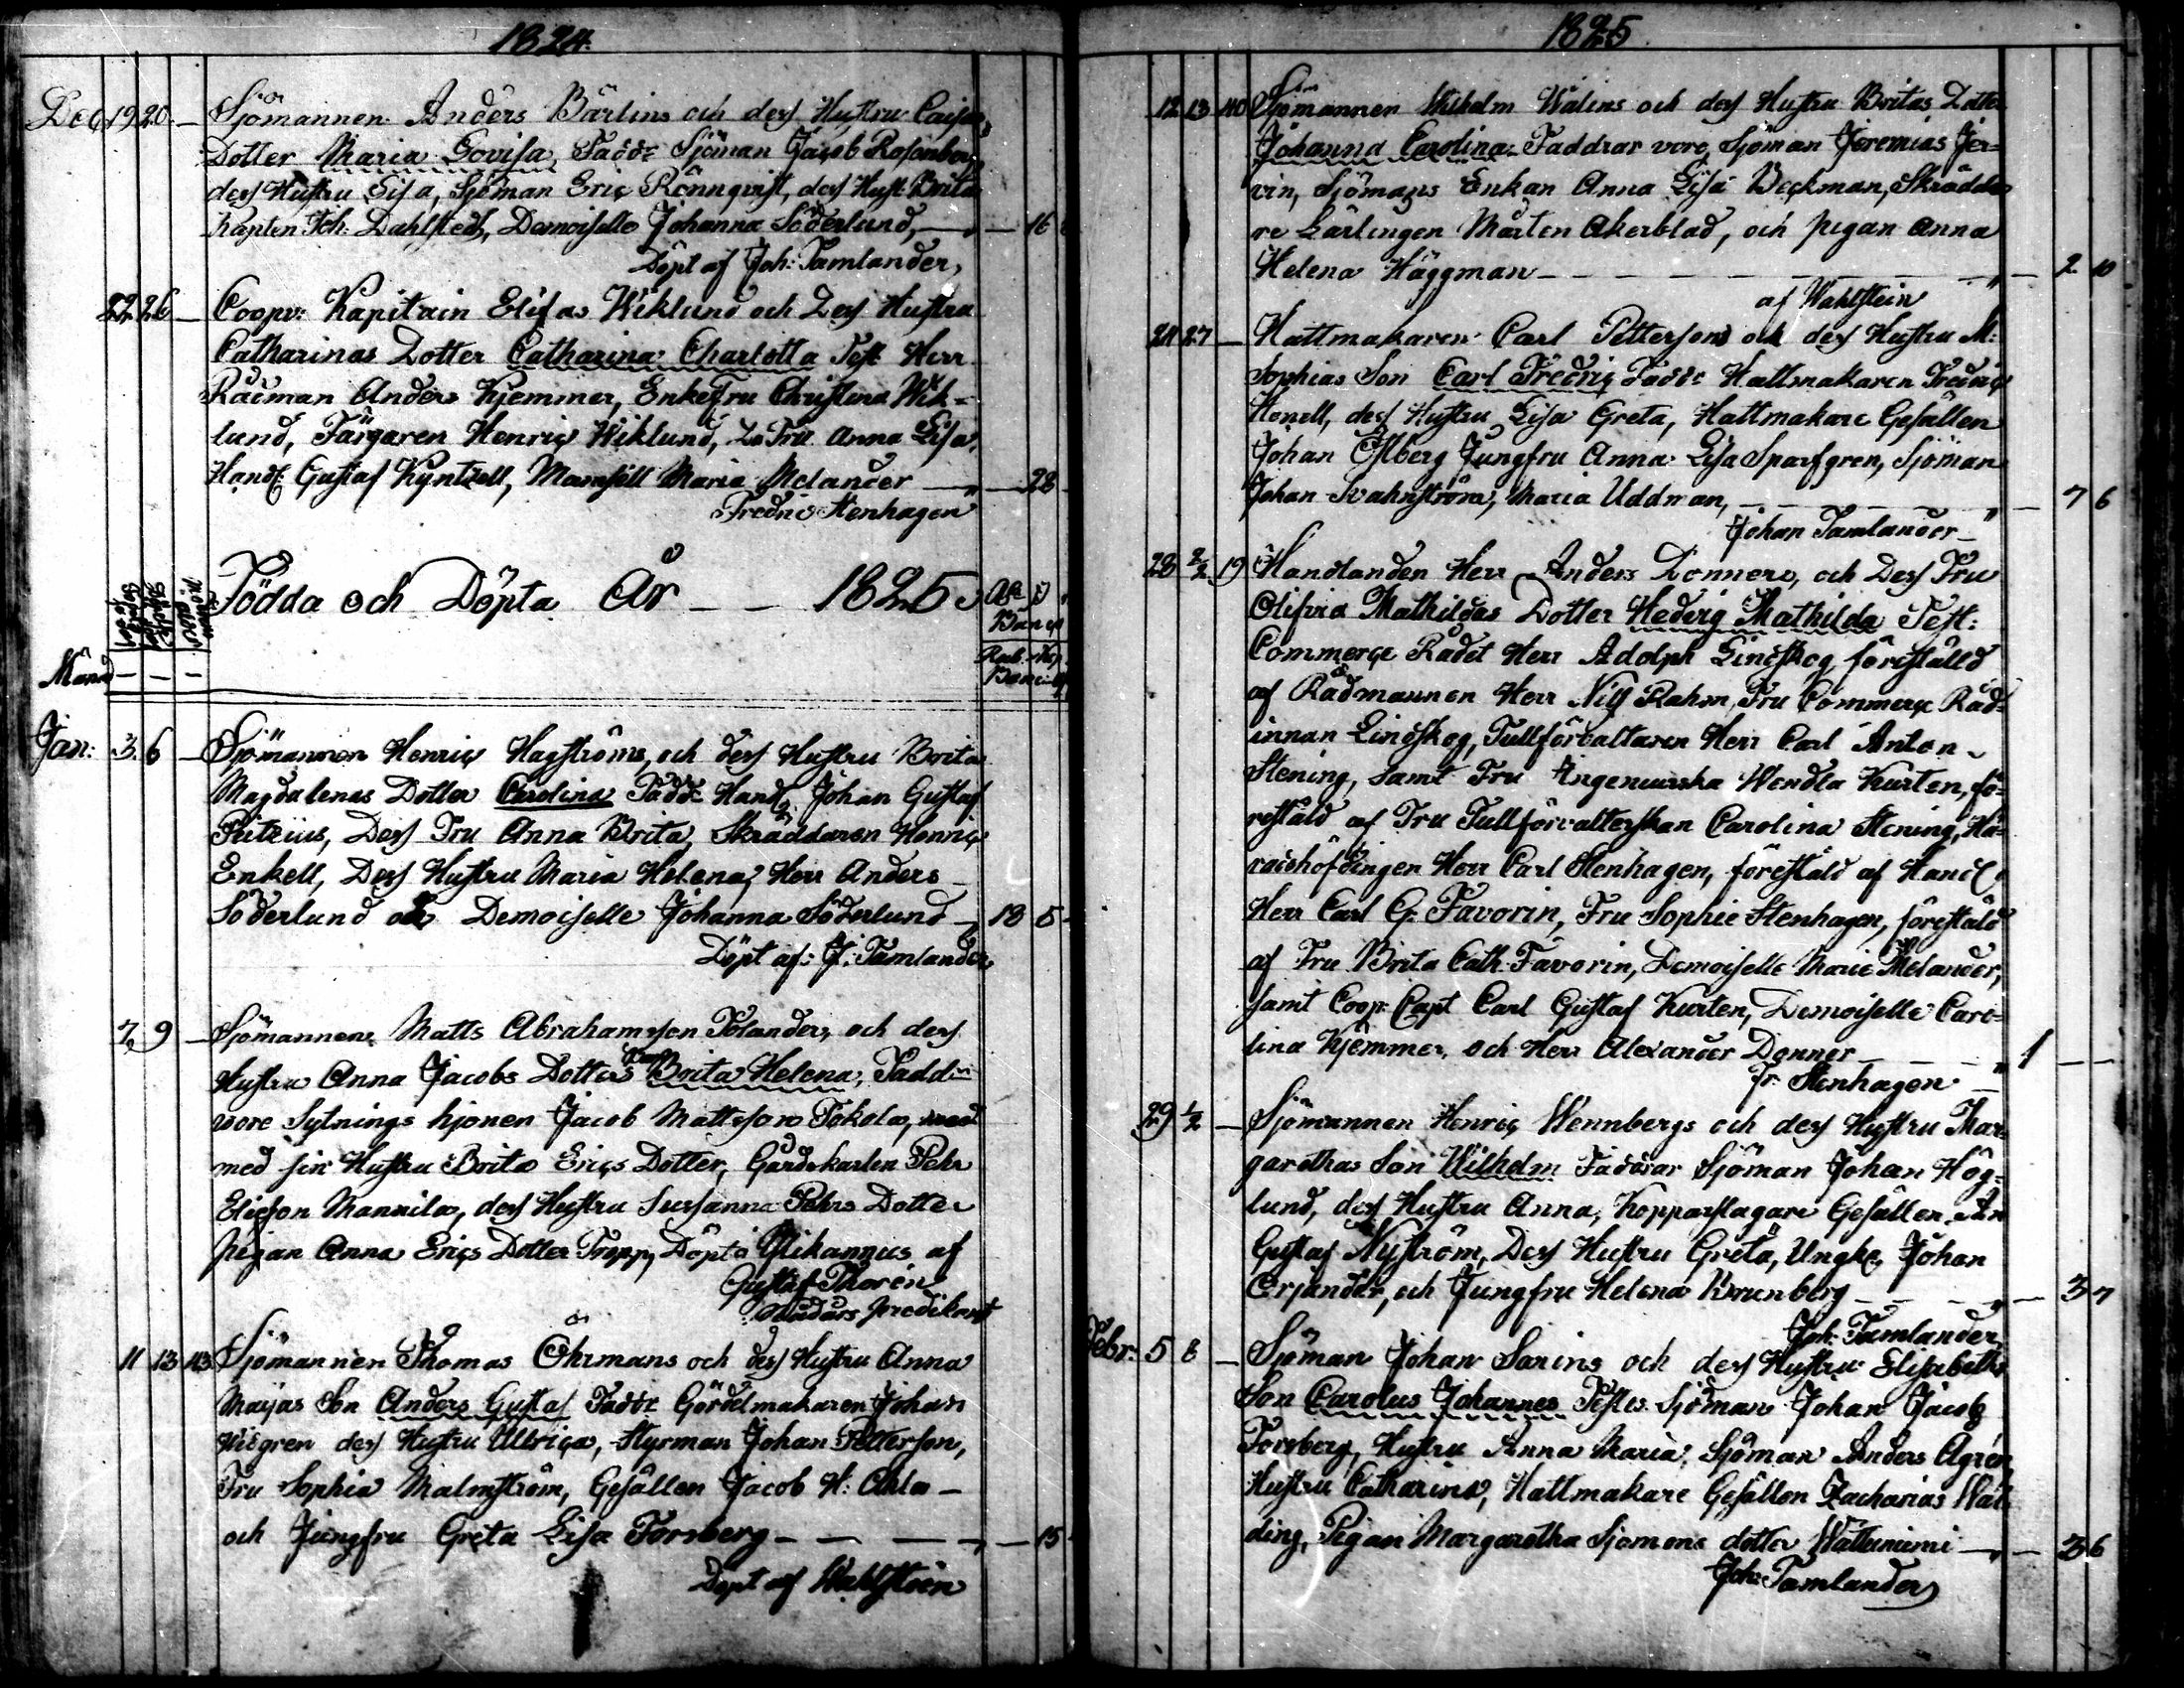 1824.
Dec. 19 20 — Sjömannen Anders Bärlins och dess Hustru Caisas
Dotter Maria Lovisa, Faddr Sjöman Jacob Rosenberg
dess Hustru Lisa, Sjöman Eric Rönnqvist, dess Hust: Brita
Kapten Joh: Dahlstedt, Demoiselle Johanna Söderlund, — 16
Döpt af Joh: Tamlander,
22 26 — Coopv: Kapitain Elisas Wiklund och Dess Hustru
Catharinas Dotter Catharina Charlotta Test Herr
Rådman Anders Kjemmer, Enkefru Christina Wik-
lund, Färgaren Henric Wiklund, Fru Anna Lisa,
Handl: Gustaf Kyntzell, Mamsell Maria Melander — 28
Fredric Stenhagen
Födda och Döpta År — — 1825
Månd — — —
Jan: 3. 6 — Sjömannen Henric Hagströms, och dess Hustru Brita
Magdalenas Dotter Carolina Faddr Handl: Johan Gustaf
Peitzius, Dess Fru Anna Brita, Skräddaren Henric
Enkell, Dess Hustru Maria Helena, Herr Anders
Söderlund och Demoiselle Johanna Söderlund — 13 5
Döpt af: J: Tamlander,
7 9 — Sjömannens Matts Abrahamsson Tolanders, och dess
Hustru Anna Jacobs Dotters Brita Helena, Fadd:
vore Sytnings hjonen Jacob Mattsson Tokola,
med sin Hustru Brita Erics Dotter, Gårdskarlen Pehr
Ericson Mannila, dess Hustru Sussanna Pehrs Dotter
pigan Anna Erics Dotter Tropp, Döpt af
Gustaf Thorén
Nådårs predikant
11 13 43 Sjömannen Thomas Öhrmans och dess Hustru Anna
Majas Son Anders Gustaf Faddr Gördelmakaren Johan
Widgren dess Hustru Ullrica, Styrman Johan Petterson,
Fru Sophia Malmström, Gesällen Jacob H: Ahla —
och Jungfru Greta Lisa Forsberg — — — 15
Döpt af Wahlstein
1825.
12 13 40 Sjömannen Wilhelm Walins och dess Hustru Britas Dotter
Johanna Carolina. Faddrar voro, Sjöman Jeremias Jer-
vin, Sjömans Enkan Anna Lisa Beckman, Skrädda
re Lärlingen Mårten Åkerblad, och pigan Anna
Helena Häggman — — — 2 10
af Wahlstein
24 27 — Hattmakaren Carl Pettersons och dess Hustru M:
Sophias Son Carl Fredric Faddr Hattmakaren Fredric
Honell, dess Hustru Lisa Greta, Hattmakare Gesällen
Johan Östberg Jungfru Anna Lisa Sparfgren, Sjöman
Johan Svahnström, Maria Uddman, — — 7 6
Johan Tamlander
28 2/2 19 Handlanden Herr Anders Donners, och Dess Fru
Olifvia Mathildas Dotter Hedvig Mathilda Test:
Commerce Rådet Herr Adolph Lindskog, föreställd
af Rådmannen Herr Nils Rahm, Fru Commerce Råd-
innan Lindskog, Tullförvaltaren Herr Carl Anton
Stening, samt Fru Ingenieurska Wendla Kurten, fö-
reställd af Fru Tullförvalterskan Carolina Stening, Hä-
radshöfdingen Herr Carl Stenhagen, föreställd af Handl:
Herr Carl G: Favorin, Fru Sophie Stenhagen, föreställd
af Fru Brita Cath: Favorin, Demoiselle Marie Melander,
samt Coop: Capt Carl Gustaf Kurten, Demoiselle Caro-
lina Kjemmer, och Herr Alexander Donner — 1 —
Fr: Stenhagen
29 1/2 — Sjömannen Henric Wennbergs och dess Hustru Mar-
garethas Son Wilhelm Faddrar Sjöman Johan Hög-
lund, dess Hustru Anna, Kopparslagare Gesällen An
Gustaf Nyström, Dess Hustru Greta, Ungke Johan
Örjander, och Jungfru Helena Brunberg — 3 7
Joh: Tamlander
Febr: 5 8 — Sjöman Johan Sarins och dess Hustru Elisabeths
Son Carolus Johannes Testes Sjöman Johan Jacob
Forsberg, Hustru Anna Maria, Sjöman Anders Ågren
Hustru Catharina, Hattmakare Gesällen Zacharias Wal
ding, Pigan Margaretha Sjömons dotter — 3 6
Joh: Tamlander